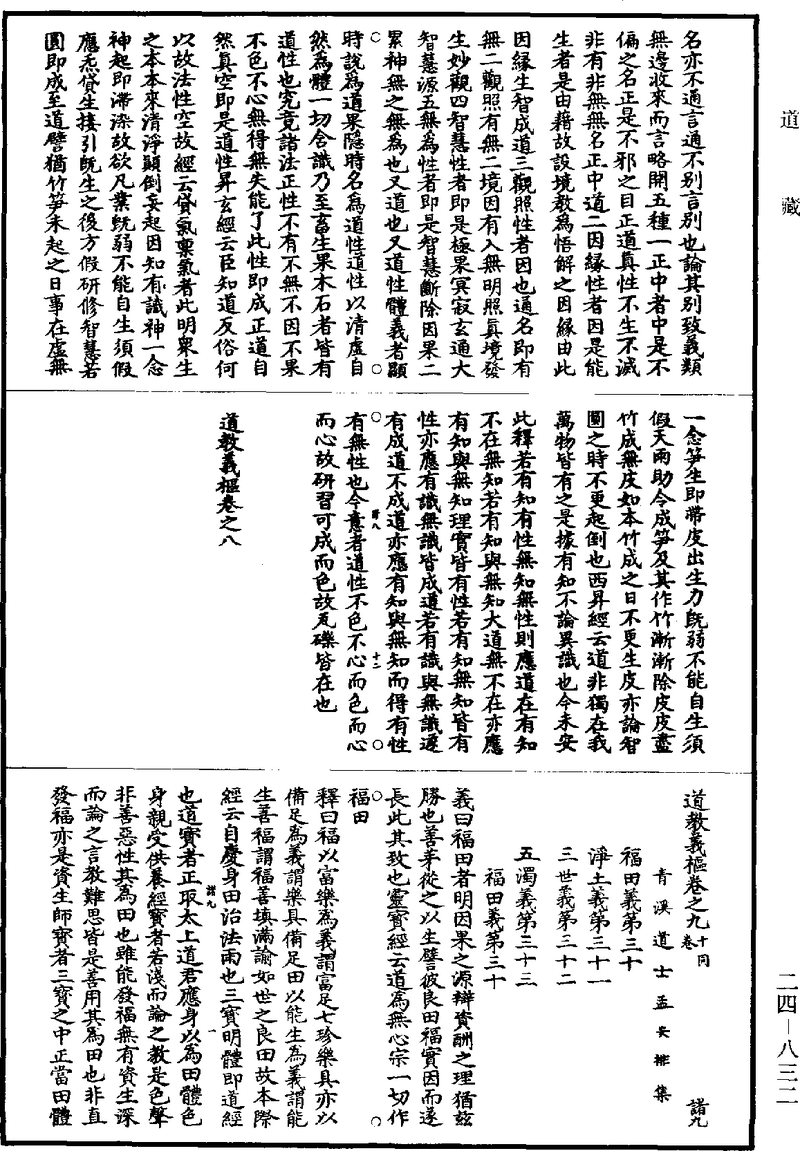 道藏
名亦不通言通不别言别也論其别致義類
無邊收來而言略開五種一正中者中是不
偏之名正是不邪之目正道真性不生不滅
非有非無無名正中道二因緣性者因是能
生者是由藉故設境教為悟解之因緣由此
因緣生智成道三觀照性者因也通名即有
無二觀照有無二境因有入無明照真境發
生妙觀四智慧性者即是極果冥寂玄通大
智慧源五無為性者即是智慧斷除因果二
累神無之無為也又道也又道性體義者顯
時說為道果隱時名為道性道性以清虛自
然為體一切含識乃至畜生果木石者皆有
道性也究竟諸法正性不有不無不因不果
不色不心無得無失能了此性即成正道自
然真空即是道性昇玄經云臣知道反俗何
以故法性空故經云貸氣稟氣者此明眾生
之本本來清淨顛倒妄起因知有識神一念
神起即滯染故欲凡業既弱不能自生須假
應炁貸生接引既生之後方假研修智慧若
圓即成至道譬猶竹笋未起之日事在虛無
一念笋生即帶皮出生力既弱不能自生須
假天雨助令成笋及其作竹漸漸除皮皮盡
竹成無皮如本竹成之日不更生皮亦論智
圓之時不更起倒也西昇經云道非獨在我
萬物皆有之是據有知不論異識也今未安
此釋若有知有性無知無性則應道在有知
不在無知若有知與無知大道無不在亦應
有知與無知理實皆有性若有知無知皆有
性亦應有識無識皆成道若有識與無識遂
有成道不成道亦應有知與無知而得有性
有無性也今意者道性不色不心而色而心
而心故研習可成而色故瓦礫皆在也
道教義樞卷之八
諸八
十二
道教義樞卷之九 十同卷
諸九
青溪道士孟安排集
福田義第三十
淨土義第三十一
三世義第三十二
五濁義第三十三
福田義第三十
義曰福田者明因果之源辯資酬之理猶兹
勝也善茅從之以生譬彼良田福實因而遂
長此其致也靈寶經云道為無心宗一切作
福田
釋曰福以富樂為義謂富足七珍樂具亦以
備足為義謂樂具備足田以能生為義謂能
生善福謂福善填滿諭如世之良田故本際
經云自慶身田治法雨也三寶明體即道經
也道寶者正取太上道君應身以為田體色
身親受供養經寶者若淺而論之教是色聲
非善惡性其為田也雖能發福無有資生深
而論之言教難思皆是善用其為田也非直
發福亦是資生師寶者三寶之中正當田體
諸九
一
二四—八三二